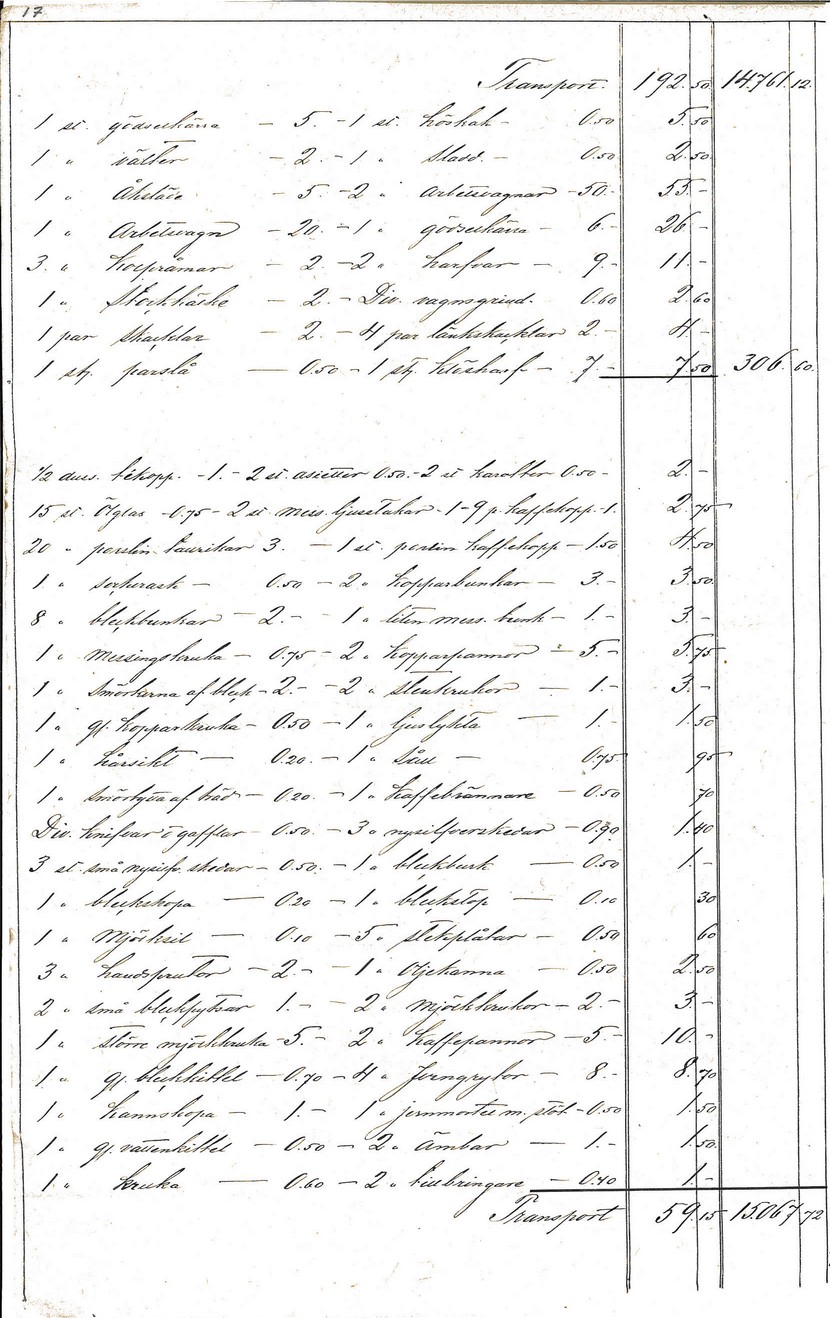 17
Transport. 192.50 14.761.12.
1 st. gödselkärra - 5. - 1 st. höskak - 0.50 5.50
1 " välter - 2. - 1 " sladd. - 0.50 2.50
1 " Åksläde - 5. - 2 " arbetsvagnar - 50.- 55.-
1 " Arbetsvagn - 20. - 1 " gödselkärra - 6.- 26.-
3. " - 2. - 2 " harfvar - 9.- 11.-
1 " Stockhäcke - 2. - Div. vagnsgrind. 0.60 2.60
1 par skacklar - 2. - 4 par länkskacklar 2.- 4.-
1 st. parslå - 0.50 - 1 st. klösharf - 7.- 7.50 306.60.
1/2 duss. tékopp. - 1.- 2 st. asietter 0.50.- 2 st karotter 0.50- 2.-
15 st. Ölglas - 0.75 - 2 st mess. ljusstakar - 1 - 9 p. kaffekopp. - 1. 2.75
20 " porslin taurikar 3. - 1 st. porslin kaffekopp - 1.50 4.50
1 " sockerask - 0.50 - 2 " Kopparbunkar - 3.- 3.50.
8 " bleckbunkar - 2.- - 1 " liten mess. bunk - 1.- 3.-
1 " Messingskruka - 0.75 - 2 " Kopparpannor - 5.- 5.75
1 " Smörkärna af bleck - 2.- - 2 " stenkrukor - 1.- 3.-
1 " gl. Kopparkruka - 0.50 - 1 " ljuslykta - 1.- 1.50
1 " hårsikt - 0.20. - 1 " såll - 0.75 95
1 " smörbytta af träd - 0.20. - 1 " Kaffebrännare - 0.50 70
Div. knifvar o gafflar - 0.50. - 3 " nysilfverskedar - 0.90 1.40
3 st. små nysilfv. skedar - 0.50. - 1 " bleckburk - 0.50 1.-
1 " bleckskopa - 0.20 - 1 " bleckstop - 0.10 30
1 " Mjölksil - 0.10 - 5 " stekplåtar - 0.50 60
3 " handsprutor - 2.- - 1 " Oljekanna - 0.50 2.50
2 " små bleckpyttsar 1.- - 2 " mjölkkrukor - 2.- 3.-
1 " större mjölkkruka - 5.- 2 " Kaffepannor - 5.- 10.-
1 " gl. bleckkittel - 0.70 - 4 " Jerngrytor - 8.- 8.70
1 " Kannskopa - 1.- 1 " jernmortel m. stöt. - 0.50 1.50
1 " gl. vattenkittel - 0.50 - 2 " ämbar - 1.- 1.50.
1 " kruka - 0.60 - 2 " tillbringare - 0.40 1.-
Transport 59.15 15.067.72